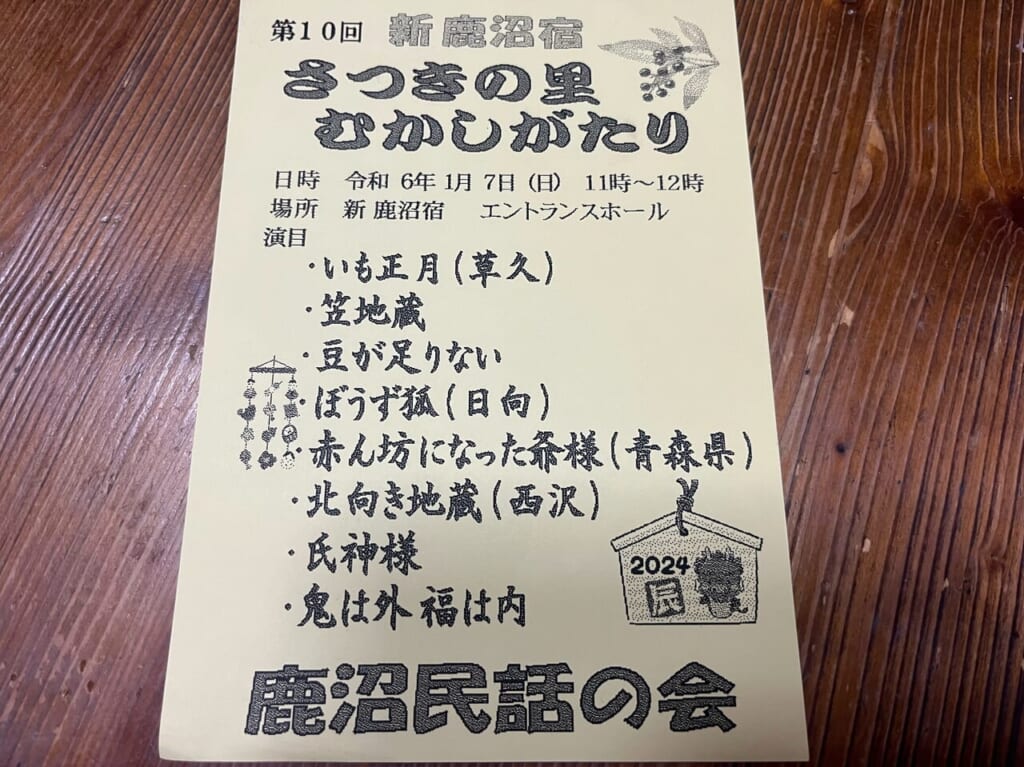 第10回 新鹿沼宿
さつきの里
むかしがたり
日時 令和 6年 1月 7日 (日) 11時～12時
場所 新鹿沼宿 エントランスホール
演目
・いも正月(草久)
・笠地蔵
・豆が足りない
・ぼうず狐(日向)
・赤ん坊になった爺様(青森県)
・北向き地蔵(西沢)
・氏神様
・鬼は外 福は内
2024
辰
鹿沼民話の会